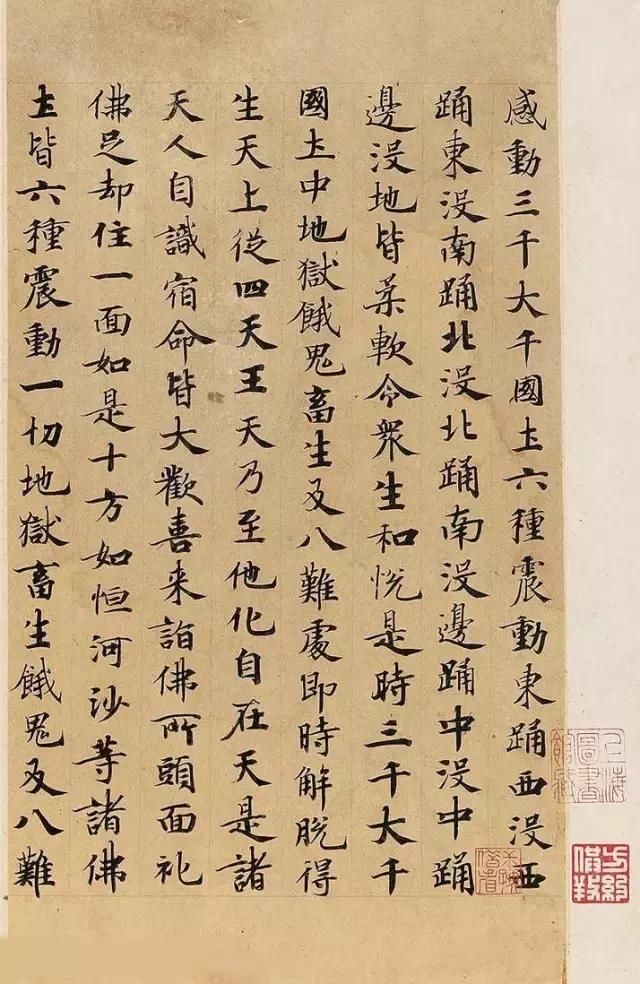 感動三千大千國土六種震動東踊西没西
踊東没南踊北没北踊南没邊踊中没中踊
邊没地皆柔軟令衆生和悦是時三千大千
國土中地獄餓鬼畜生及八難處即時解脱得
生天上從四天王天乃至他化自在天是諸
天人自識宿命皆大歡喜来詣佛所頭面礼
佛足却住一面如是十方如恒河沙等諸佛
土皆六種震動一切地獄畜生餓鬼及八難